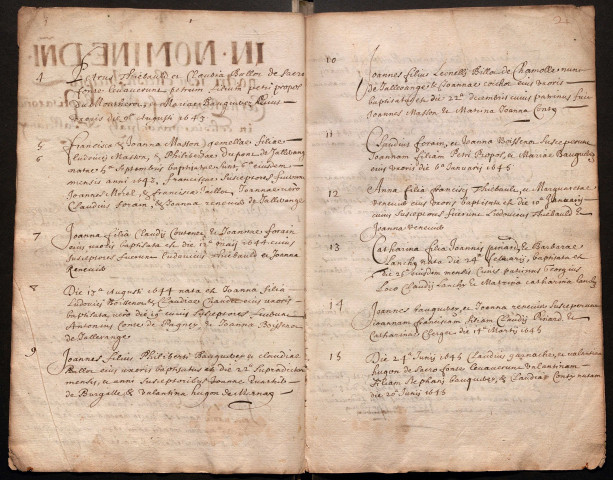 IN NOMINE DNI
4 Petrus Thiebault et Claudia Bollot de sacro
fonte levaverunt petrum filium petri propos
du Monsherou et Mariae Bauquitey Eiusu
uxoris die 6ª Augusti 1643
5 Francisca & Joanna Masson gemellae filiae
6 Ludovici Masson, & Philibertae Dupont de Tallerang
natae 4ª Septembris baptizatae sunt 6ª eiusdem
mensis anni 1643, Franciscae Susceptores fuerunt
Joannes Morel, & Francisca Taillon Joannae vero
Claudius forain, & Joanna renevist de Tallerange
7 Joanna filia Claudij Coutenet & Joannae forain
eius uxoris baptisata est die 12ª maij 1644 cuius
Susceptores fuerunt ludovicus Thiebault et Joanna
Renevist
8 Die 17ª Augusti 1644 nata est Joanna filia
Ludovici & Claudiae eius uxoris
baptisata, vero die 19ª cuius Susceptores fuerunt
Antonius Conte de Pugney & Joanna Boissenot
de Tallerange
9 Joannes filius Philiberti Bauquitey et claudiae
Bollot eius uxoris baptisatus est die 22 Supradicta
mensis, et anni Susceptoribus Joanne
de Burgille & Valantina hugon de
24
10 Joannes filius Leonelli Billot de Chamolle nunc
de Tallerange, et Joannae eius uxoris
baptisatus est die 22ª decembris cuius patrinus fuit
Joannes Masson & Matrina Joanna Conte
11 Claudius forain, et Joanna Boissenot Susceperunt
Joannam filiam Petri Propos, et Mariae Bauquitey
eius uxoris die 6ª Januarij 1645
12 Anna filia francisci Thiebault, et Margaritae
renevist eius uxoris baptisata est die 10ª Januarij
cuius Susceptores fuerunt Ludovicus Thiebault &
Joanna renevist
13 Catharina filia Joannis & Barbarae
Lanchy nata die 24ª februarij, baptisata est
die 25ª eiusdem mensis Cuius patrinus
Loco Claudij Lanchy & Matrina catharina lanchy
14 Joannes bauquitey, et Joanna renevist Susceperunt
Joannam franciscam filiam Claudij &
Catharinae Clerget die 14ª Martij 1645
15 Die 24ª Junij 1645 Claudius garnache, et valantina
hugon de Sacro fonte Levaverunt Valantinam
filiam Stephani bauquitey, & Claudiae Conte natam
die 20ª Junij 1645